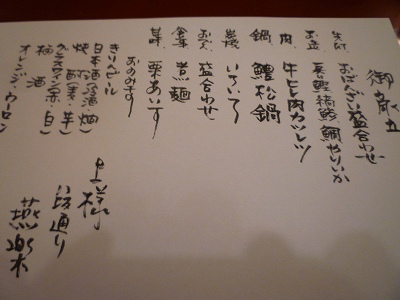 御献立
先付 おばんざい盛合わせ
お造 長鰹 縞鯵 鯛 やりいか
肉 牛ヒレ肉カツレツ
鍋 鱧松鍋
盛合わせ
食事 煮麺
甘味 栗あいす
おのみもの
きりんビール
日本酒(冷酒・燗)
焼酎(麦・芋)
グラスワイン(赤・白)
梅酒
オレンジ・ウーロン
上様
通り
燕楽